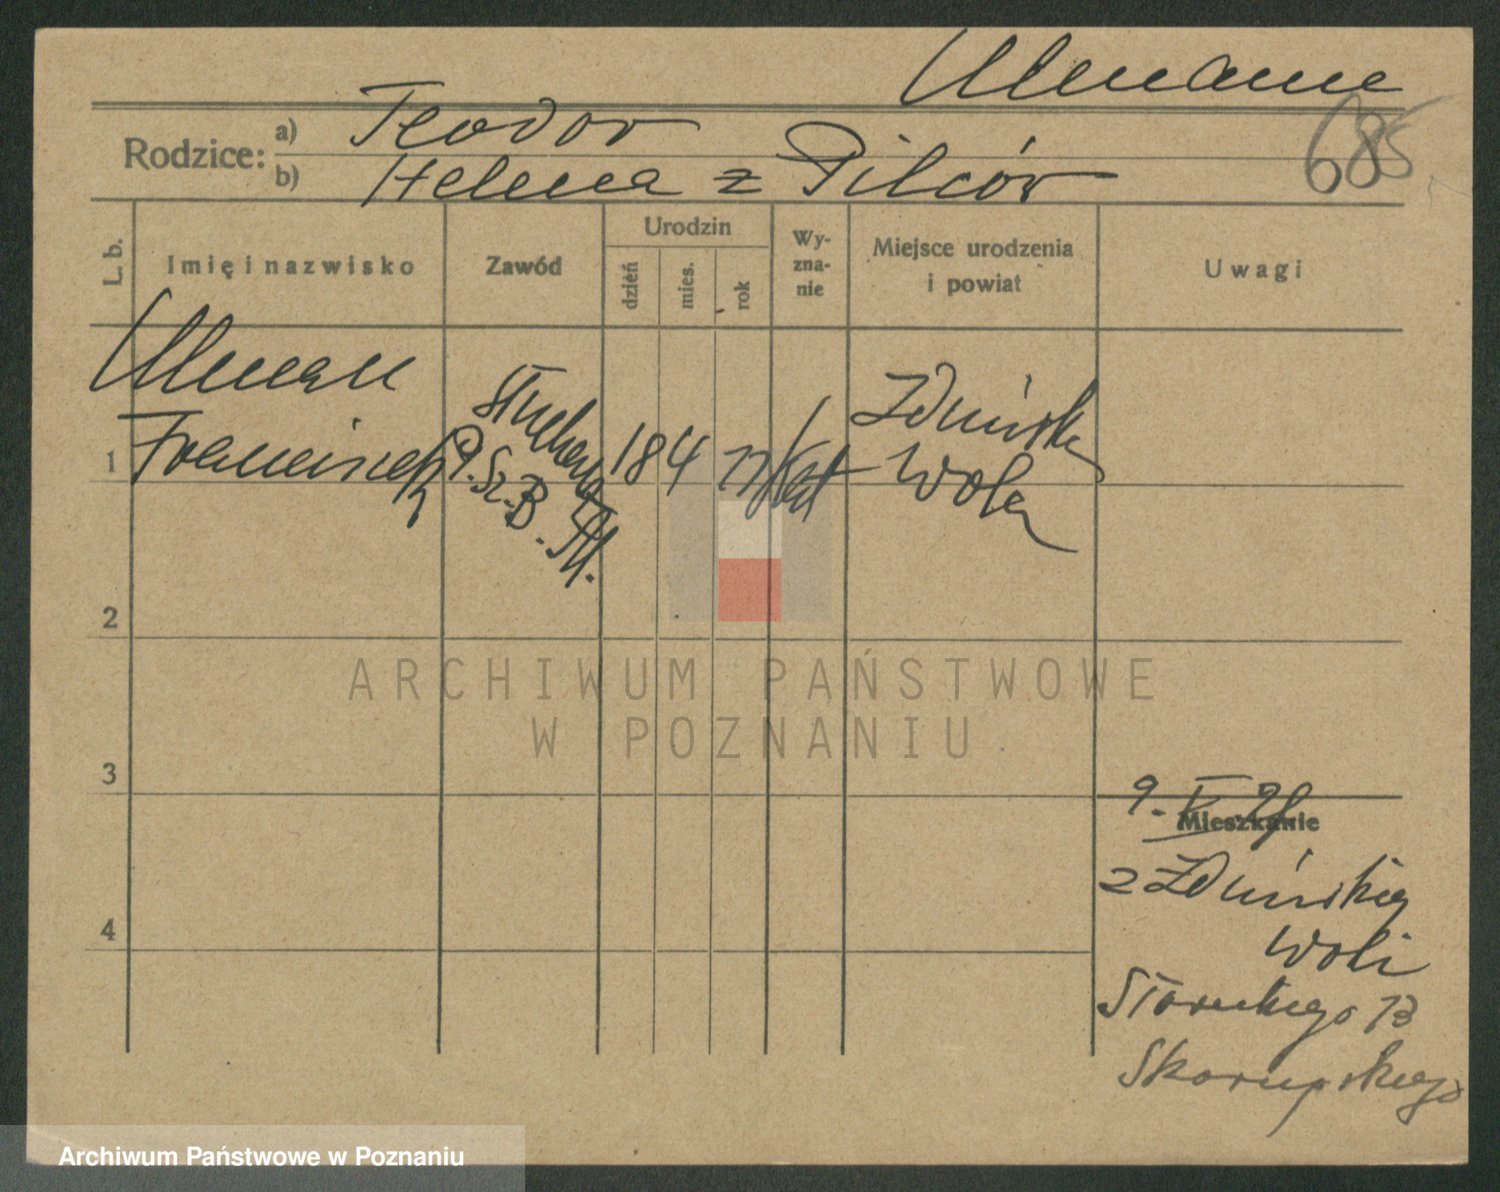 Ulmanne
Rodzice: a) Teodor
b) Helena z Pilców
685
L. b.
Imię i nazwisko
Zawód
Urodzin
dzień
mies.
rok
Wy-
zna-
nie
Miejsce urodzenia
i powiat
Uwagi
Ulman
Franciszek
1
18 4
Kat
Zduńska
Wola
2
ARCHIWUM PAŃSTWOWE
W POZNANIU
3
9.
Mieszkanie
z Zduńskiej
Woli
4
13
Skorupskiego
Archiwum Państwowe w Poznaniu